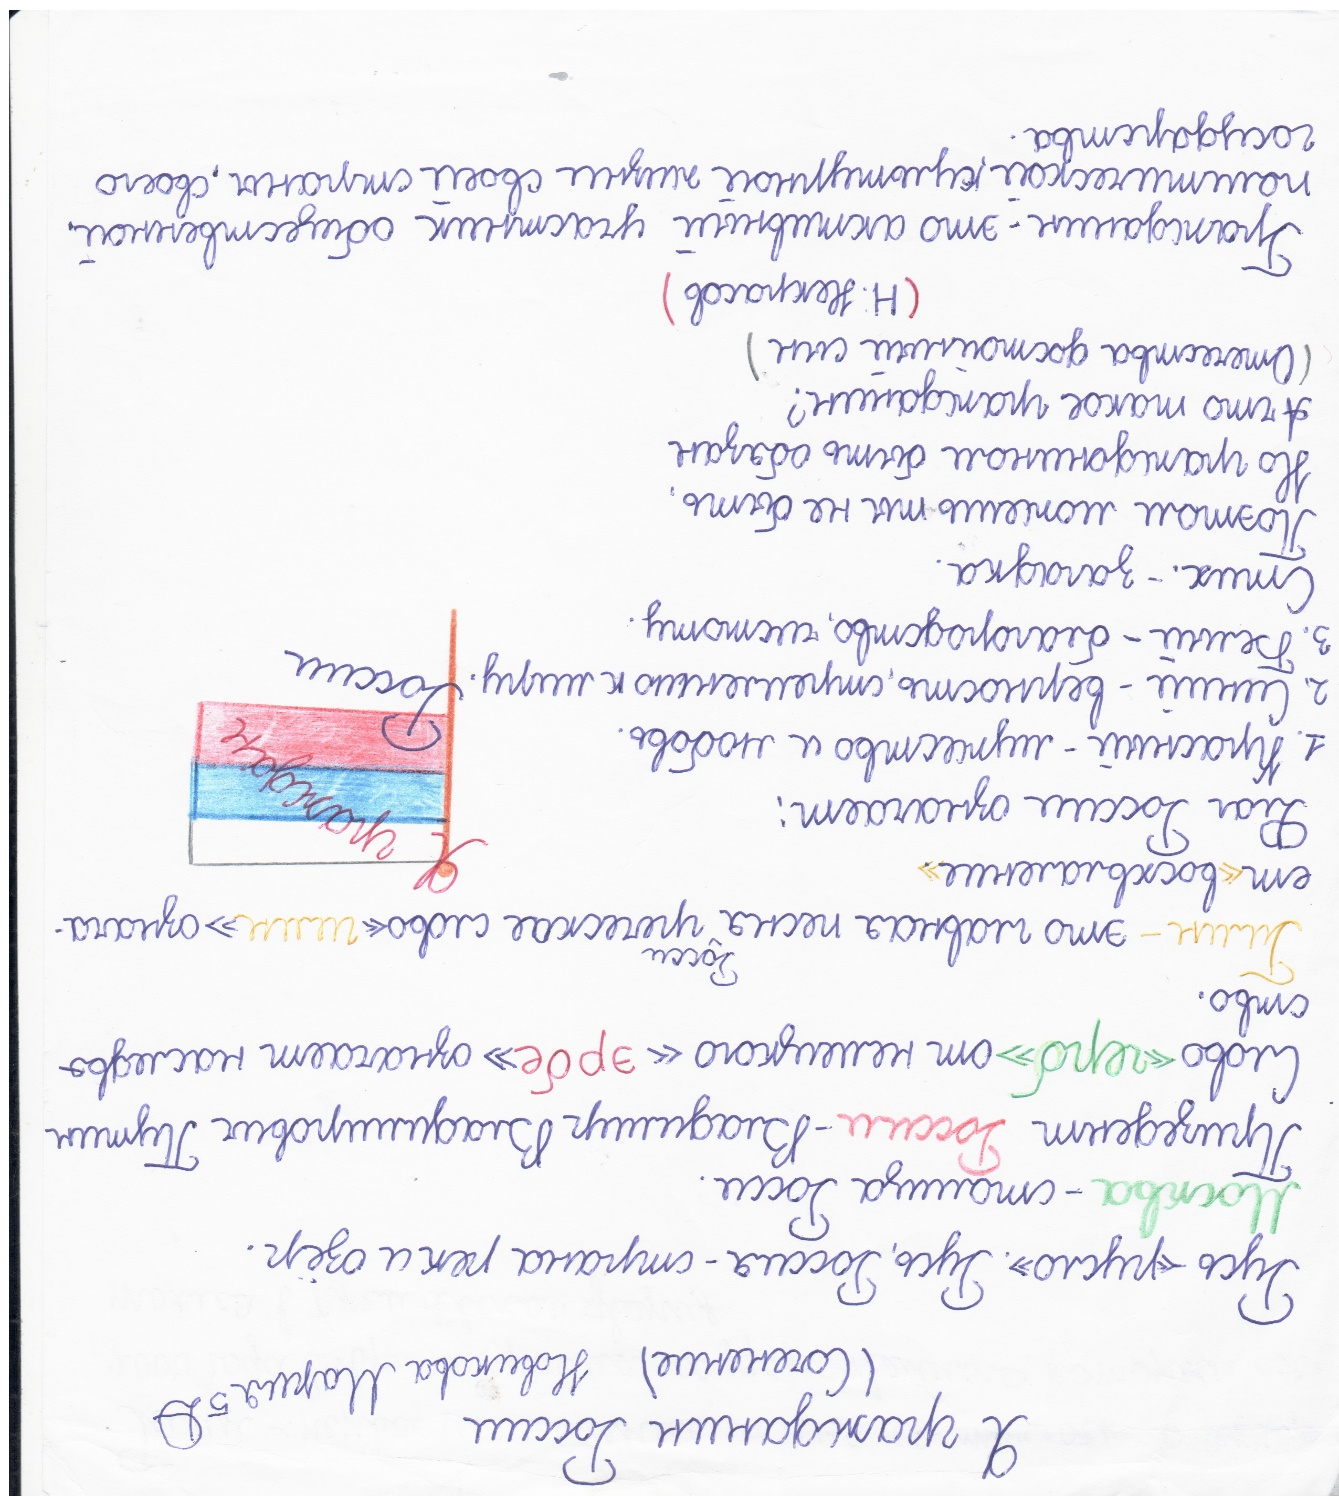 Я гражданин России
(Сочинение) Новикова Мария 5Д
Русь «русло». Русь, Россия - страна рек и озёр.
Москва - столица Росси.
Призедент России - Владимир Владимирович Путин
Слово «герб» от немецкого «эрбе» означает наследв-
ство.
Гимн - это главная песня Росси, греческое слово «гимн» означа-
ет «восхваление»
Флаг России означает:
1. Красный - мужество и любовь.
2. Синий - верность, стремление к миру.
3. Белый - благородство, чистоту.
Я граждан
России
Стих. - загадка.
Поэтом можешь ты не быть,
Но гражданином быть обязан
А что такое гражданин?
(Отечества достойный сын)
(Н. Некрасов)
Гражданин - это активный участник общественной,
политической, культурной жизни своей страны, своего
государства.